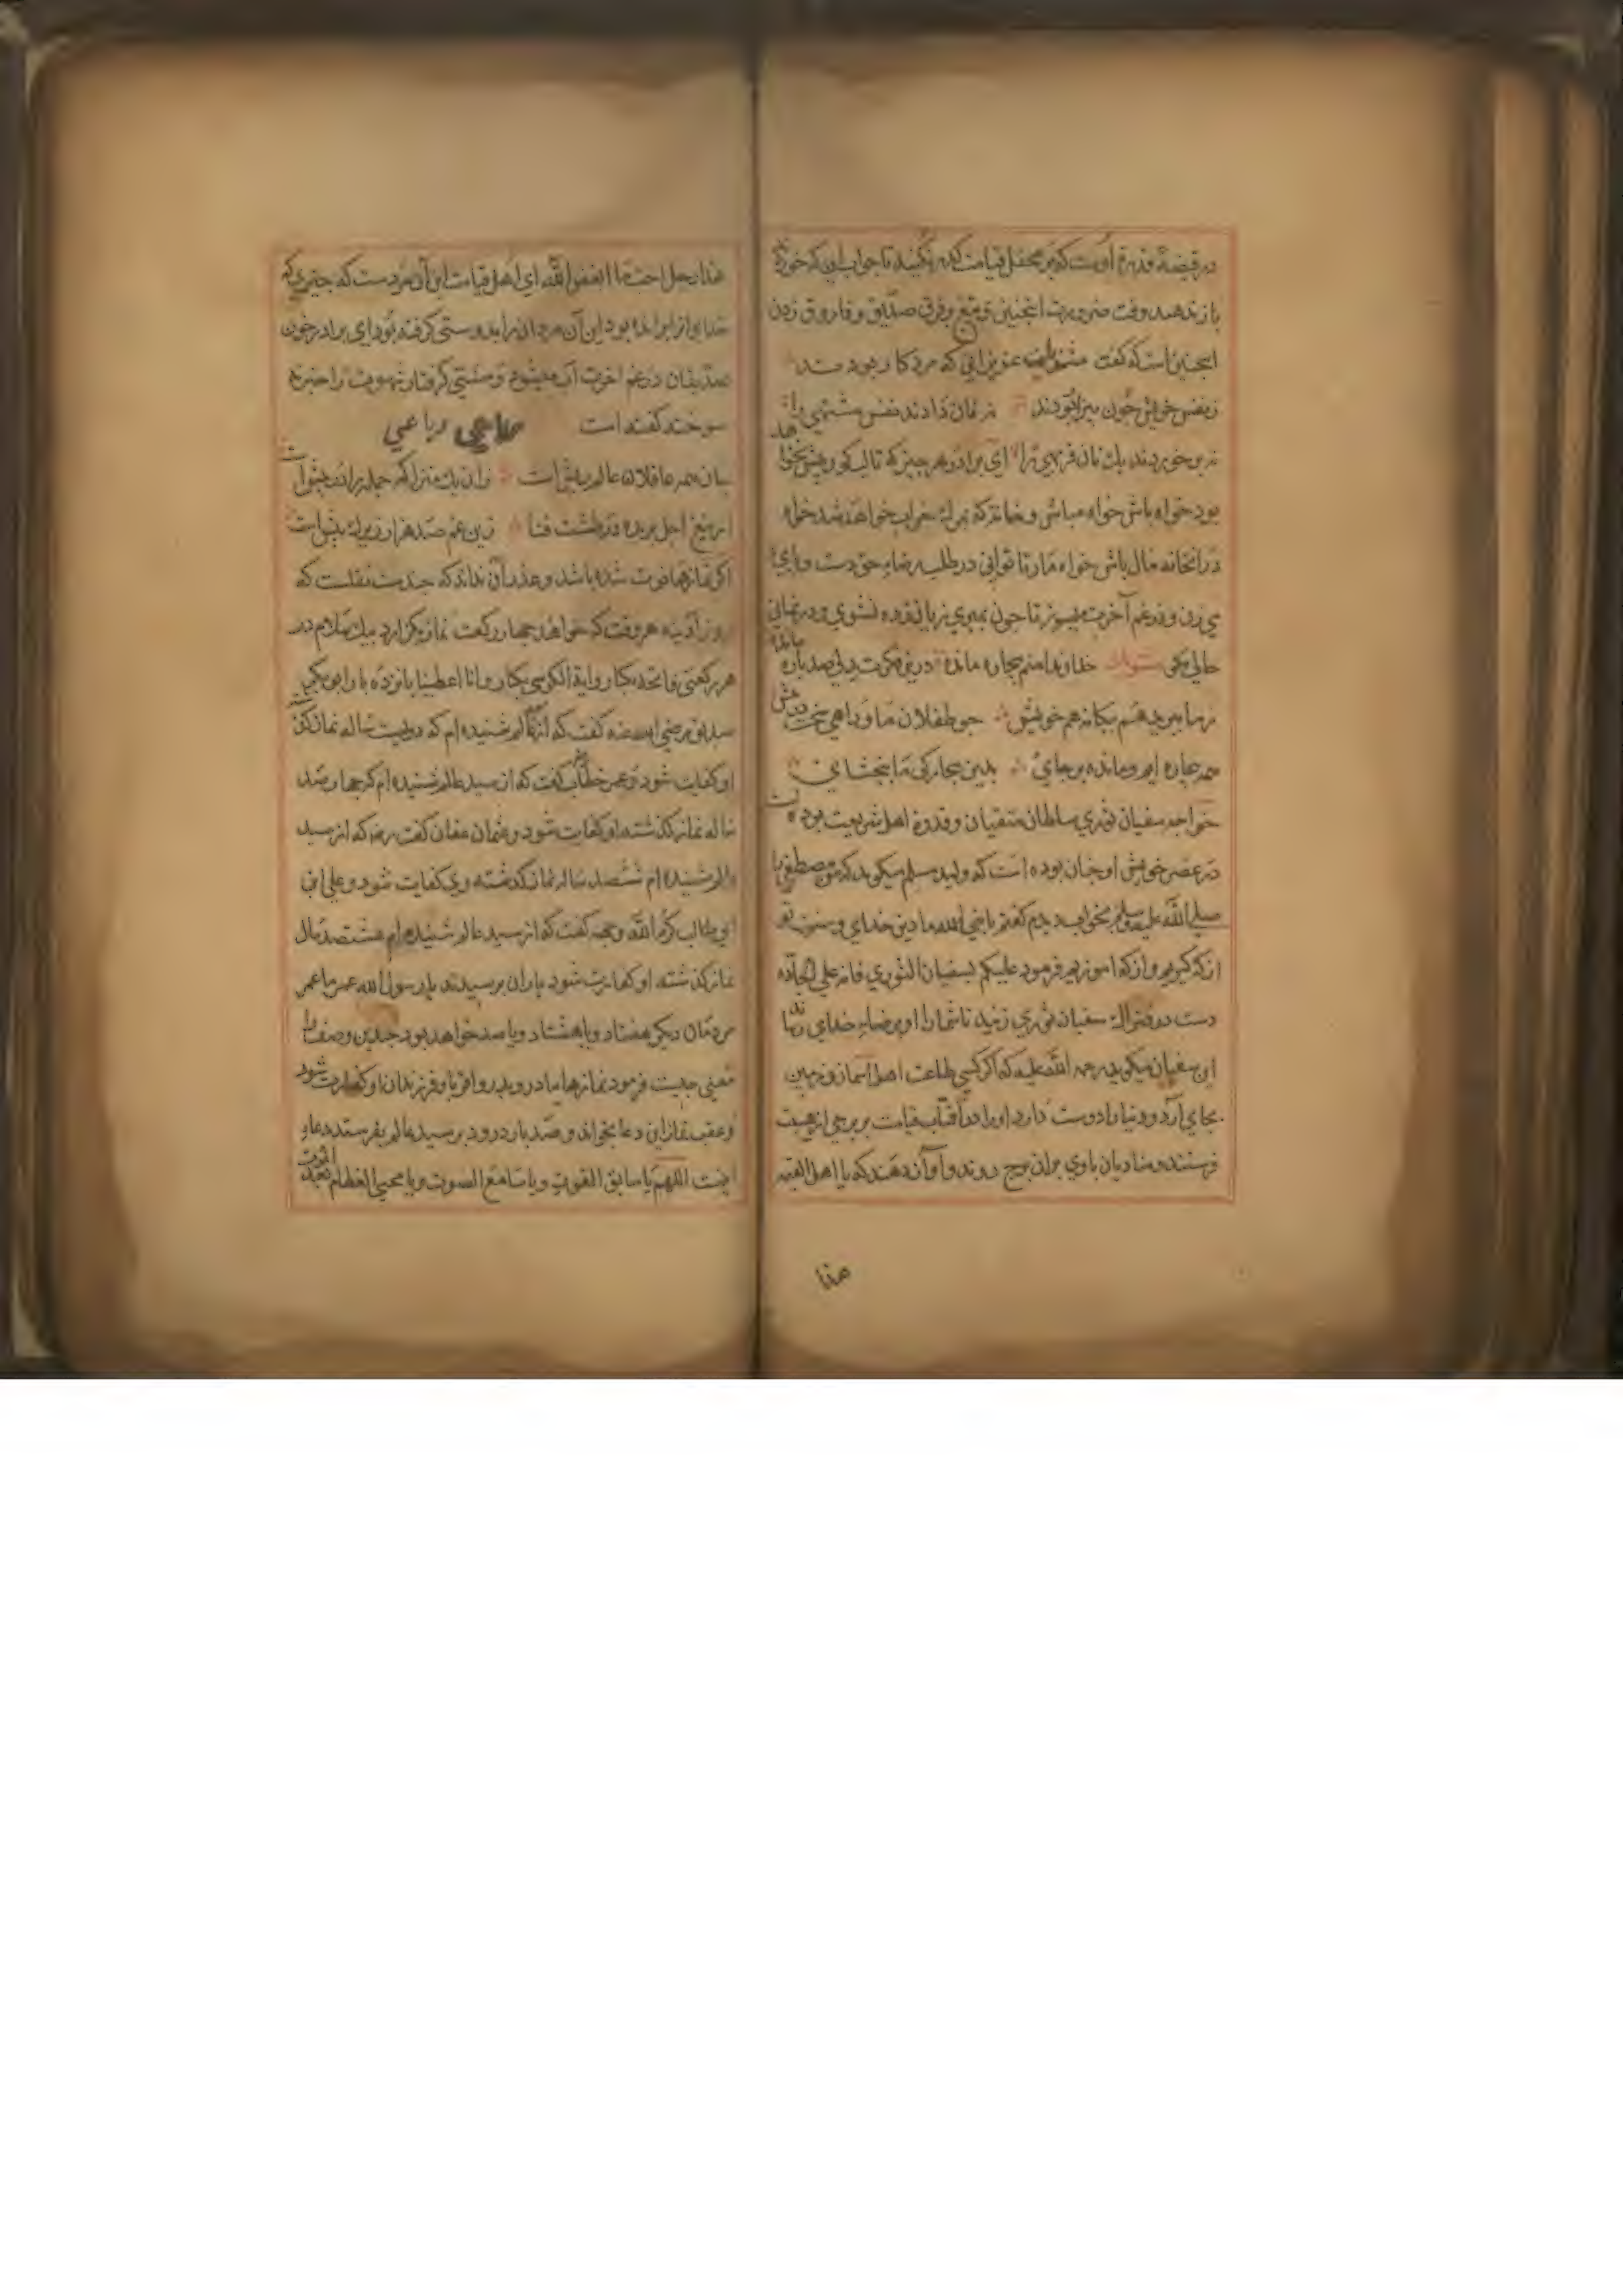 در قبضهٔ قدرة اوست که در محفل قیامت نکنید تا جواب این که خورده
باز ندهید وقت ضرورت اینچنین و فرق صدیق و فاروق زدن
اینچنین است که گفت مثنوی عزیزانی که مرد کار بودند
ز نفس خویش چون بیزار بودند ز نان دادند نفس مشتهی را
نه بر خوردند یک نان فربهی را ای برادر هر چیز که
بود خواه باش خواه مباش و خانه که خراب خواهد شد خواه
در انخانه مال باش خواه مار تا توانی در طلب رضاء حق دست و پای
می زن و در غم آخرت میسوز تا چون بمیری زیان زده نشوی و درمانی
حالی خداوندا منم بیچاره مانده درین فکرت بدلی صد پاره مانده
نه بیگانه هم خویش چو طفلان ماورا
همه بیچاره ایم و مانده بر جای بدین بیچارکی ما ببخشای
خواجه سفیان ثوری سلطان متقیان و قدوهٔ اهل شریعت بوده است
در عصر خویش او چنان بوده است که ولید مسلم میکوید که من مصطفی را
صلی الله علیه وسلم بخواب دیدم کفتم یا نبی الله ما دین خدای و سنت تو
از که کیریم و از که اموزیم فرمود علیکم بسفیان الثوری فانه علی الجاده
دست در فتراک سفیان ثوری زنید تا شما را او برضاء خدای رساند
این سفیان میکوید رحمه الله علیه که اکر کسی طاعت اهل اسمان و زمین
بجای آرد و دنیا را دوست دارد او را در آفتاب قیامت بر برجی از هیبت
فرستند و منادیان با وی بران برج روند و آواز دهند که یا اهل القیمه
هذا
هذا رجل احب ما ابغض الله ای اهل قیامت این آن مردست که چیزی که
خدای از ابرانده بود این آن مردار را بدوستی کرفته بود ای برادر خون
صدیقان در غم اخرت آب میشود و مشتی کرفتار شهوت را خبر نه
سوخته کفته است رباعی
همه عاقلان عالم است زان یک منزل که جمله را در پیش است
از تیغ اجل بریده در طشت فنا زین غم صد هزار
اکر نمازها فوت شده باشد و عدد آن نداند که چندست نقلست که
روز آدینه هر وقت که خواهد چهار رکعت نماز بکزارد بیک سلام در
هر رکعتی فاتحه یکبار و ایة الکرسی یکبار و انا اعطینا پانزده بار ابو بکر
صدیق رضی الله عنه کفت که از شنیده ام که دویست ساله نماز کذشته
او کفایت شود و عمر خطاب کفت که از سید عالم شنیده ام که چهار صد
ساله نماز کذشته او کفایت شود و عثمان عفان کفت رضه که از سید
عالم شنیده ام ششصد ساله نماز کذشته وی کفایت شود و علی ابن
ابی طالب کرم الله وجهه کفت که از سید عالم شنیده ام هشتصد سال
نماز کذشته او کفارت شود یاران پرسیدند یا رسول الله عمر ما عمر
مردمان دیکر هفتاد و یا هشتاد و یا صد خواهد بود چندین وصف را
معنی چیست فرمود نمازها مادر و پدر و اقربا و فرزندان او کفارت شود
و عقب نماز این دعا بخواند و صد بار درود بر سید عالم بفرستد دعا
اینست اللهم یا سابق الفوت و یا سامع الصوت و یا محیی العظام بعد الموت